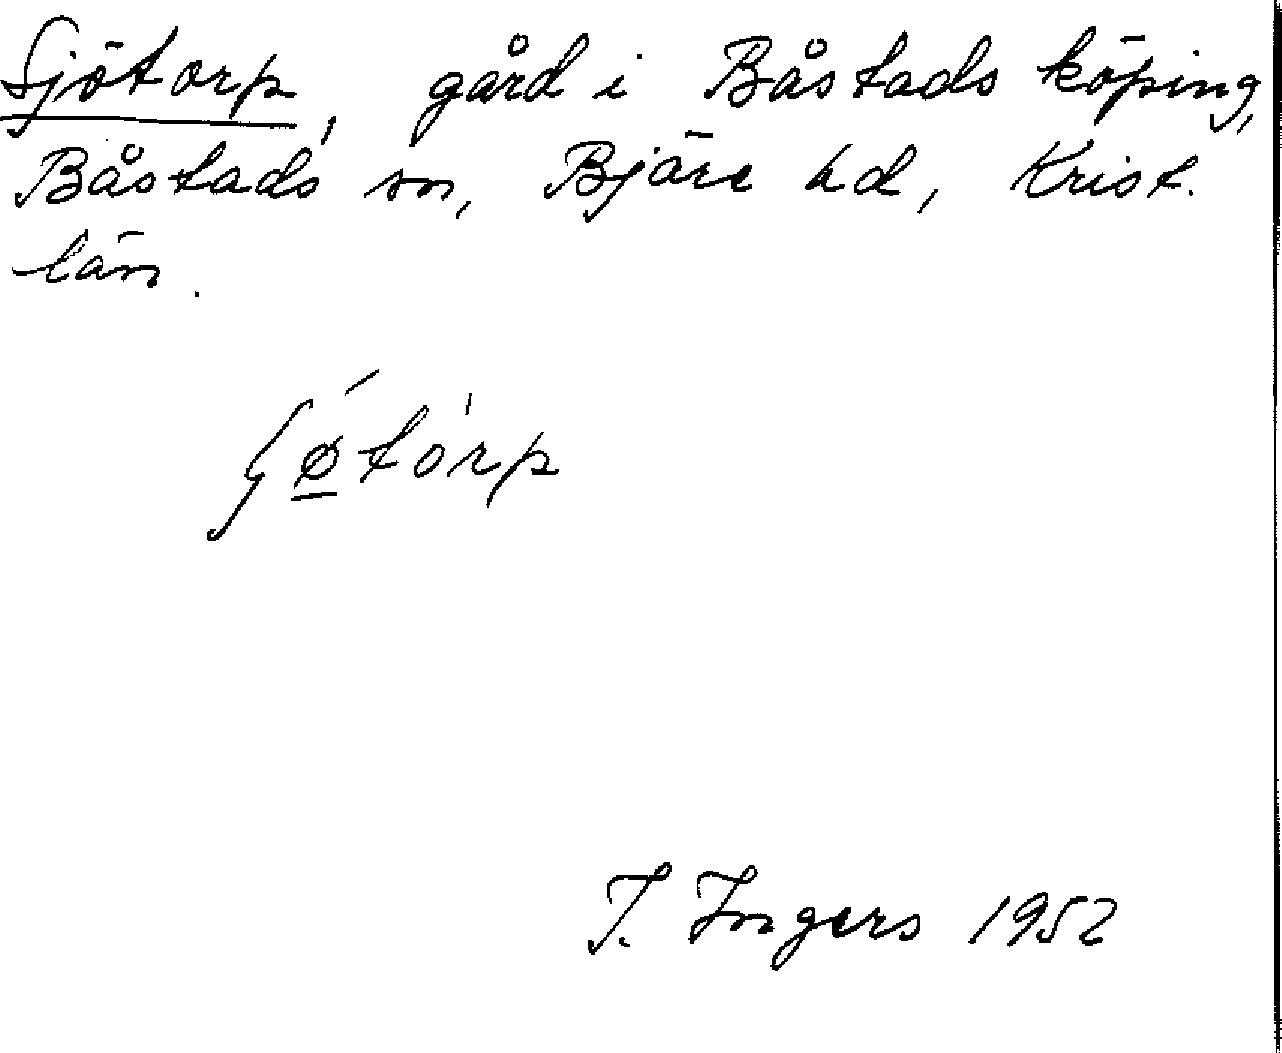 Sjötorp, gård i Båstads köping,
Båstads sn, Bjäre hd, Krist.
län.
ʃǿ̱tòrp
I. Ingers 1952